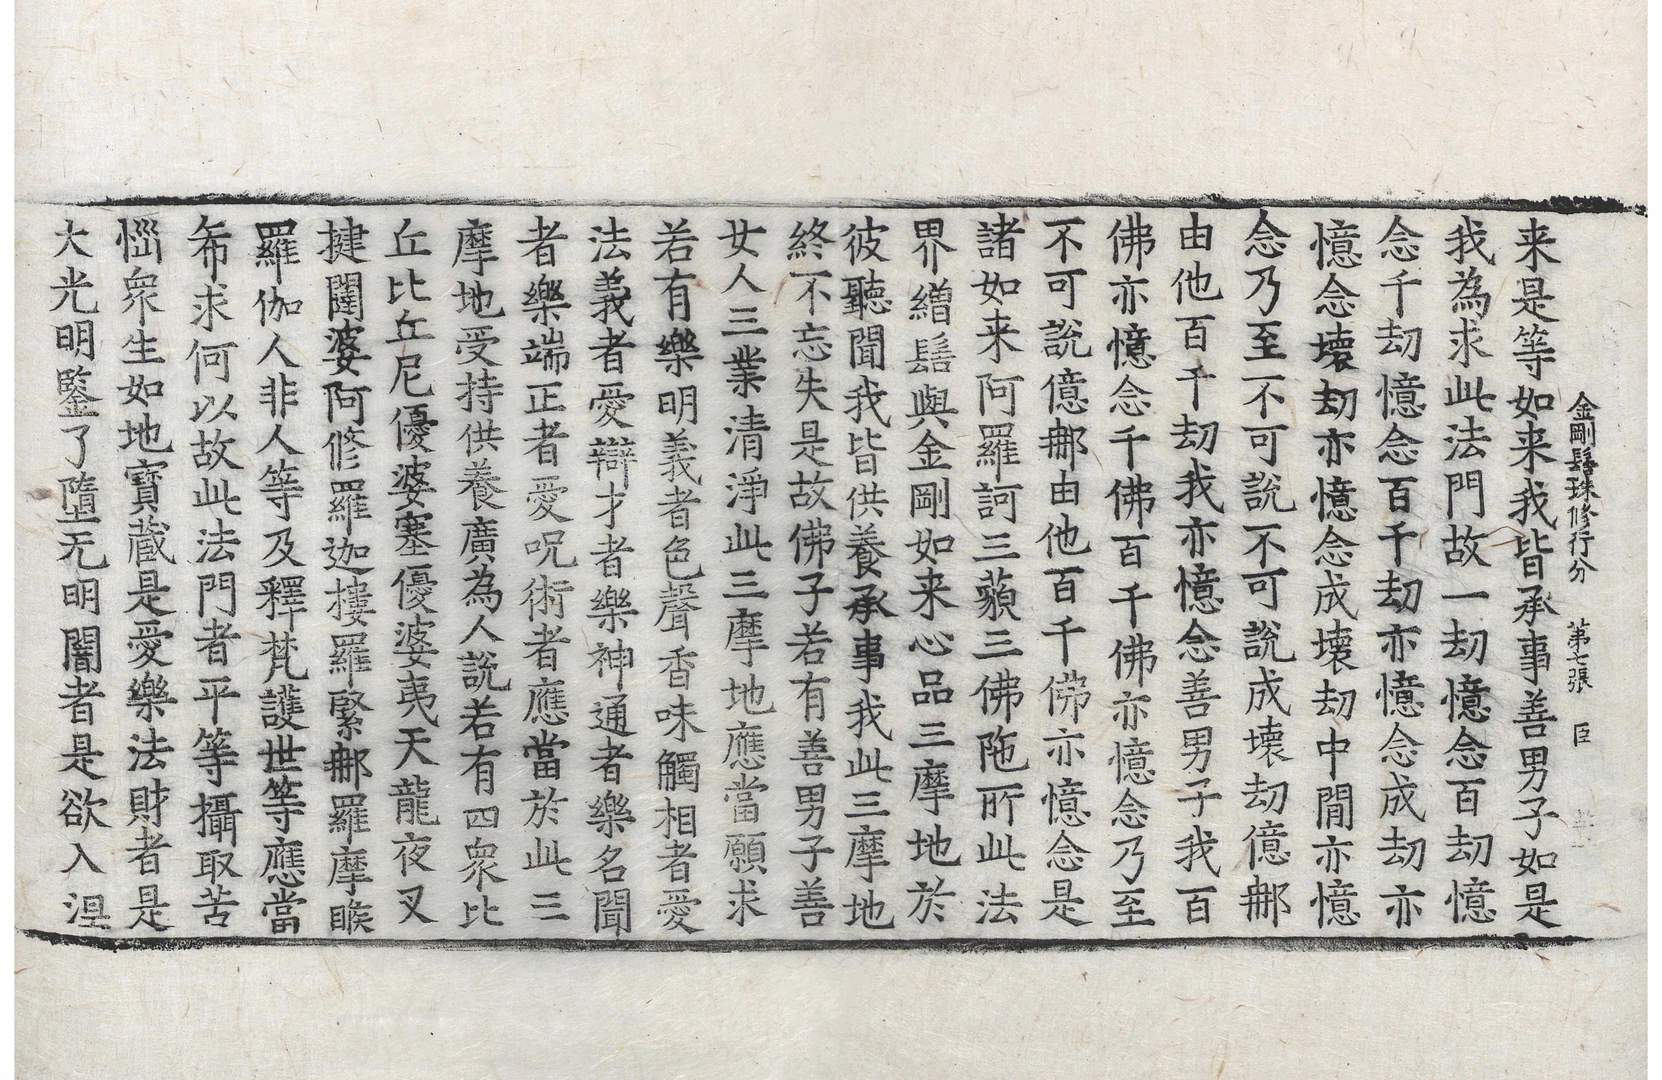 金剛髻珠修行分　第七張　臣
来是等如来我皆承事善男子如是
我為求此法門故一劫憶念百劫憶
念千劫憶念百千劫亦憶念成劫亦
憶念壞劫亦憶念成壞劫中間亦憶
念乃至不可說不可說成壞劫億那
由他百千劫我亦憶念善男子我百
佛亦憶念千佛百千佛亦憶念乃至
不可說億那由他百千佛亦憶念是
諸如来阿羅訶三藐三佛陁所此法
界繒髻與金剛如来心品三摩地於
彼聽聞我皆供養承事我此三摩地
終不忘失是故佛子若有善男子善
女人三業清淨此三摩地應當願求
若有樂明義者色聲香味觸相者愛
法義者愛辯才者樂神通者樂名聞
者樂端正者愛呪術者應當於此三
摩地受持供養廣為人說若有四衆比
丘比丘尼優婆塞優婆夷天龍夜叉
揵闥婆阿修羅迦摟羅緊那羅摩睺
羅伽人非人等及釋梵護世等應當
希求何以故此法門者平等攝取苦
惱衆生如地寶藏是愛樂法財者是
大光明鑒了墮无明闇者是欲入涅